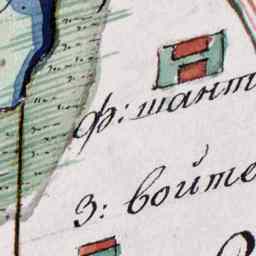 ф: шант
З: войте